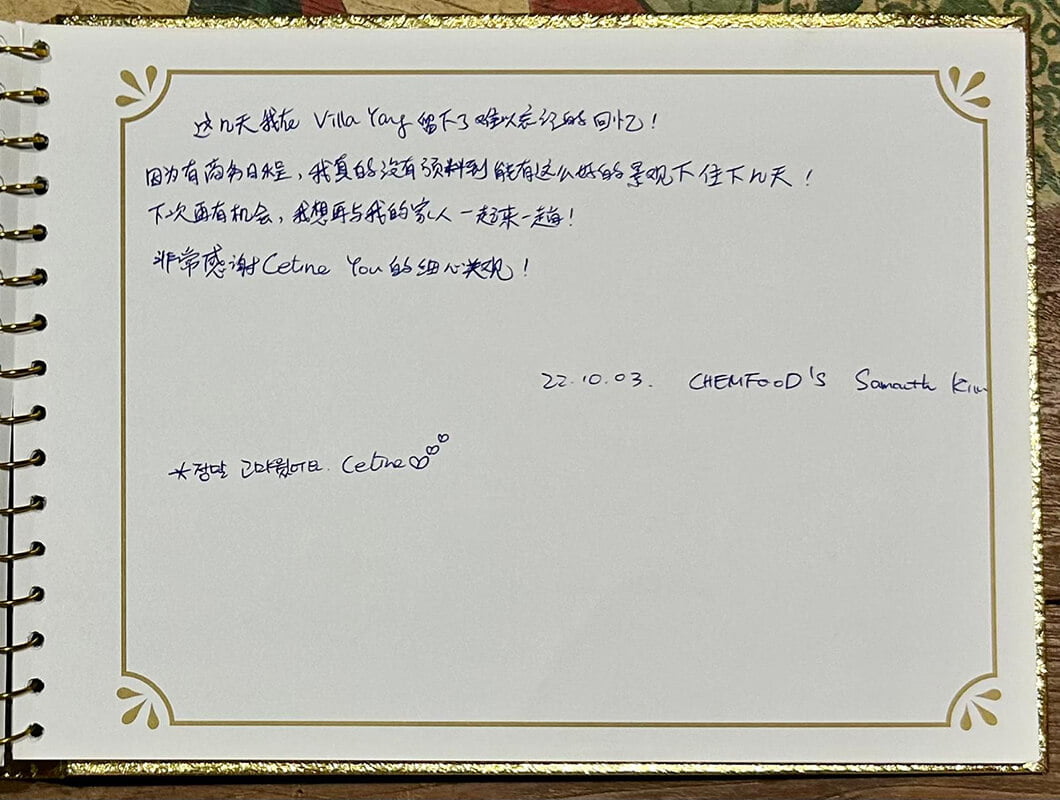 这几天我在 Villa Yang 留下了难以忘记的回忆!
因为有商务日程,我真的没有预料到能有这么好的景观下住下几天!
下次再有机会,我想再与我的家人一起来一趟!
非常感谢 Celine You 的细心关观!
22.10.03. CHEMFOOD'S Kim
*정말 고마웠어요. Celine